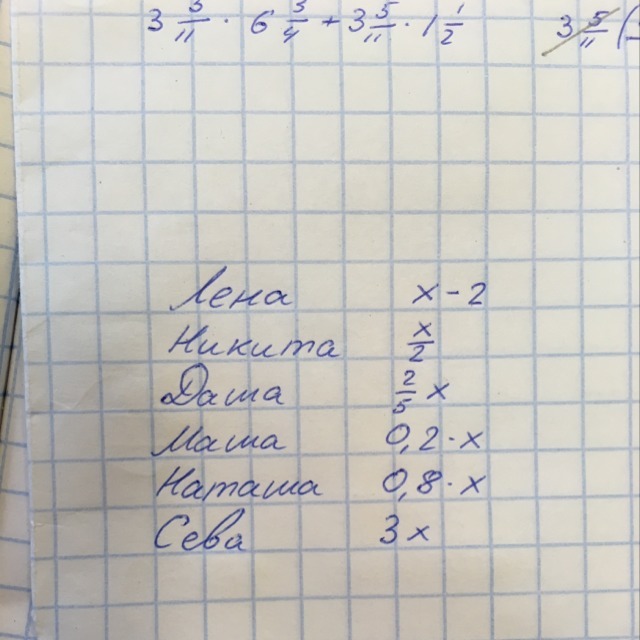 3 5/11 · 6 3/4 + 3 5/11 · 1 1/2 3 5/11 (
Лена x - 2
Никита x/2
Даша 2/5 x
Маша 0,2 · x
Наташа 0,8 · x
Сева 3x